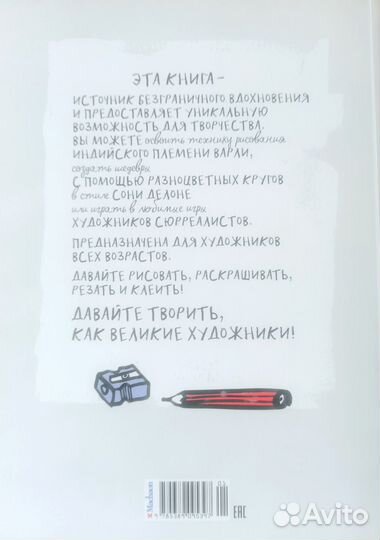 ЭТА КНИГА –
ИСТОЧНИК БЕЗГРАНИЧНОГО ВДОХНОВЕНИЯ
И ПРЕДОСТАВЛЯЕТ УНИКАЛЬНУЮ
ВОЗМОЖНОСТЬ ДЛЯ ТВОРЧЕСТВА.
ВЫ МОЖЕТЕ освоить технику рисования
ИНДИЙСКОГО ПЛЕМЕНИ ВАРЛИ,
создать шедевры
С ПОМОЩЬЮ РАЗНОЦВЕТНЫХ КРУГОВ
в стиле СОНИ ДЕЛОНЕ
или играть в любимые игры
ХУДОЖНИКОВ СЮРРЕАЛИСТОВ.
ПРЕДНАЗНАЧЕНА ДЛЯ ХУДОЖНИКОВ
ВСЕХ ВОЗРАСТОВ.
ДАВАЙТЕ РИСОВАТЬ, РАСКРАШИВАТЬ,
РЕЗАТЬ И КЛЕИТЬ!
ДАВАЙТЕ ТВОРИТЬ,
КАК ВЕЛИКИЕ ХУДОЖНИКИ!
Machaon
EAC
Avito